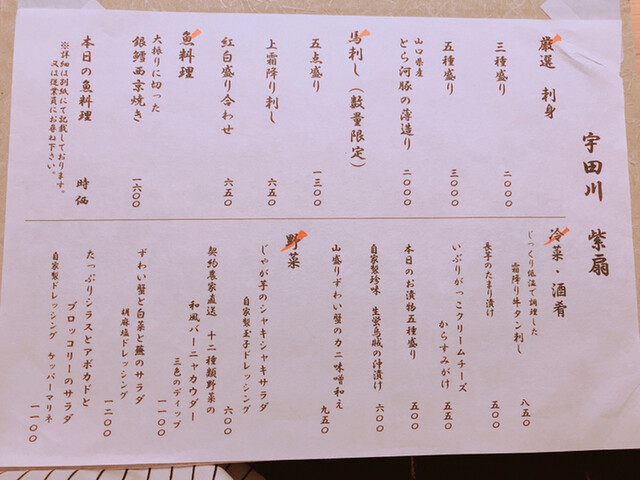 宇田川 紫扇
厳選 刺身
三種盛り 二〇〇〇
五種盛り 三〇〇〇
山口県産
とら河豚の薄造り 二〇〇〇
馬刺し(数量限定)
五点盛り 一三〇〇
上霜降り刺し 六五〇
紅白盛り合わせ 六五〇
魚料理
大振りに切った
銀鱈西京焼き 一六〇〇
本日の魚料理 時価
※詳細は別紙にて記載しております。
又は従業員にお尋ね下さい。
冷菜・酒肴
じっくり低温で調理した
霜降り牛タン刺し 八五〇
長芋のたまり漬け 五〇〇
いぶりがっこクリームチーズ
からすみがけ 五五〇
本日のお漬物五種盛り 五〇〇
自家製珍味 生蛍烏賊の汁漬け 六〇〇
山盛りずわい蟹のカニ味噌和え 九五〇
野菜
じゃが芋のシャキシャキサラダ
自家製玉子ドレッシング 六〇〇
契約農家直送 十二種類野菜の
和風バーニャカウダー
三色のディップ 一一〇〇
ずわい蟹と白菜と蕪のサラダ
胡麻塩ドレッシング 一二〇〇
たっぷりシラスとアボカドと
ブロッコリーのサラダ
自家製ドレッシング ケッパーマリネ 一一〇〇